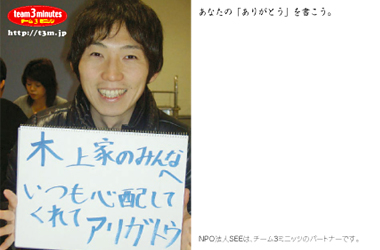 team 3 minutes
チーム 3 ミニッツ
http://t3m.jp
木上家のみんなへ
いつも心配して
くれてアリガトウ
あなたの「ありがとう」を書こう。
NPO法人SEEは、チーム3ミニッツのパートナーです。